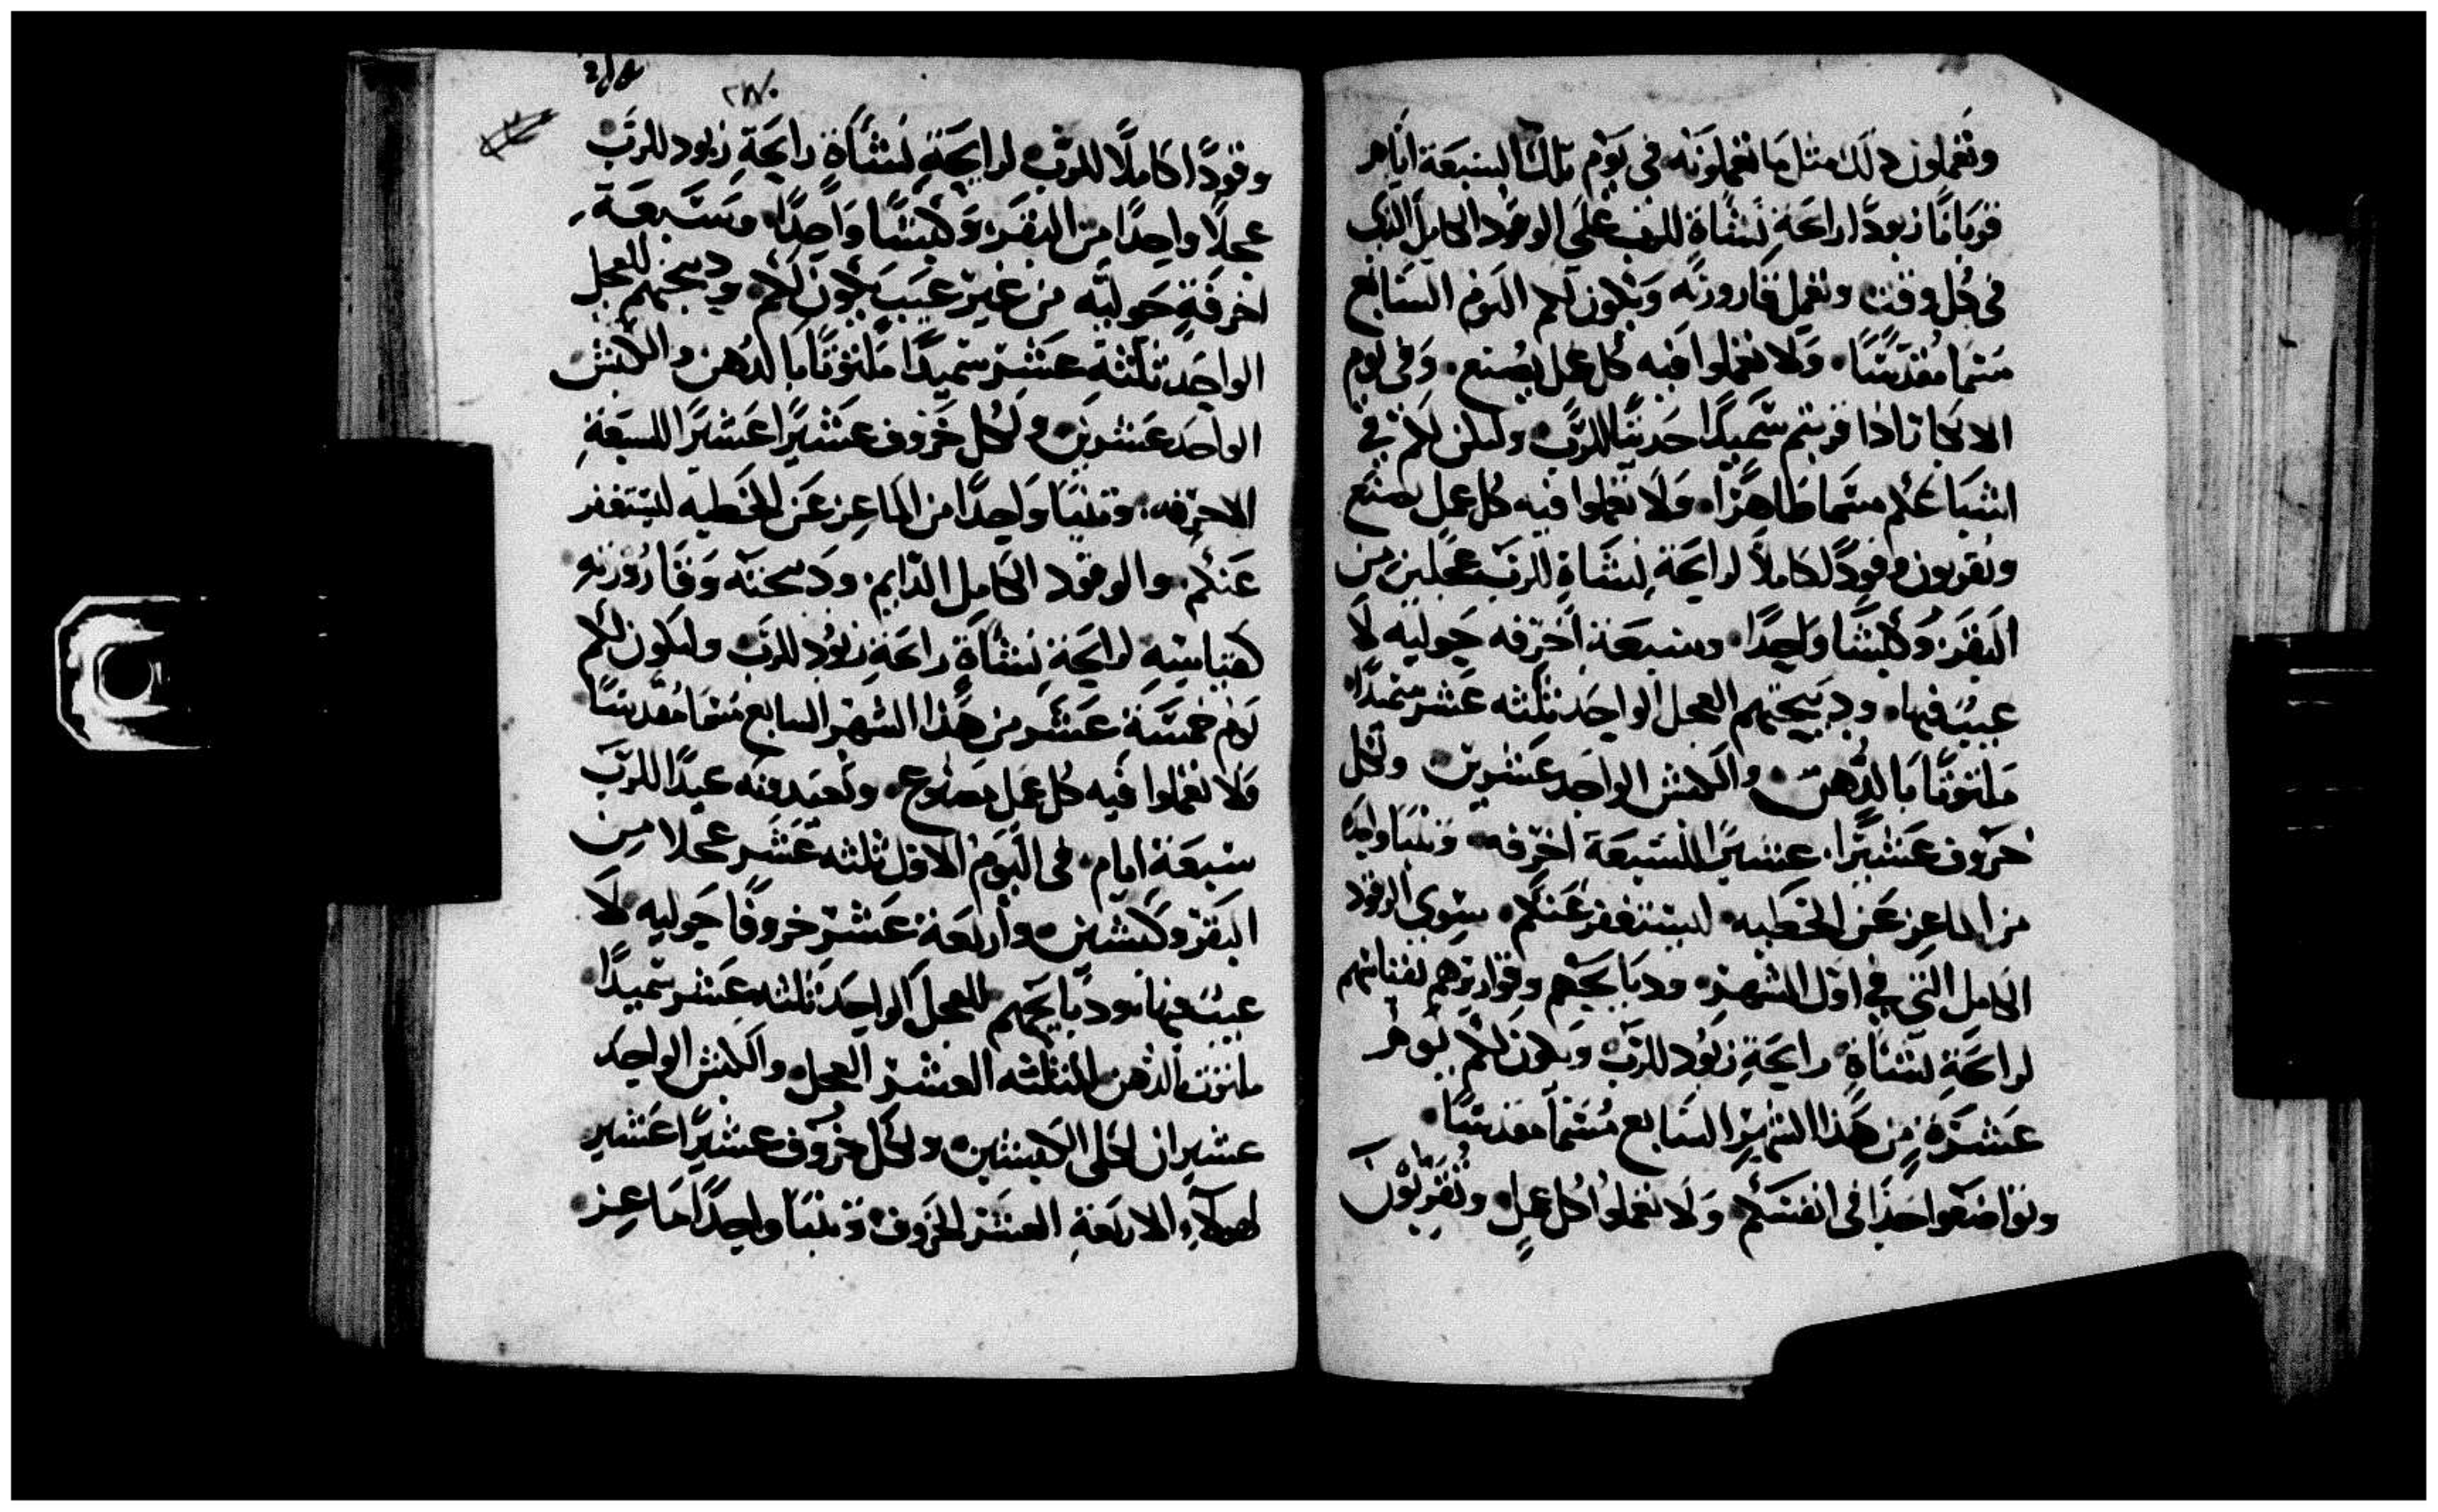 وتعملون ذلك مثل ما تعملونه في يوم تلك السبعة ايام
قربانًا زبودًا لرائحة نشاة للرب على الوقود الكامل الذي
في كل وقت وتعمل قارورته ويكون لكم اليوم السابع
مسما مقدسًا ولا تعملوا فيه كل عمل يصنع وفي يوم
الابكا اذا قربتم سميدًا حديثًا للرب وليكن لكم في
اسبا عكم مسما طاهرًا ولا تعملوا فيه كل عمل يصنع
وتقربون وقودًا كاملًا لرايحة نشاة للرب عجلين من
البقر وكبشًا واحدًا وسبعة اخرفه حوليه لا
عيب فيها وذبيحتهم العجل الواحد ثلثه عشر سميدًا
ملتوتًا بالدهن والكبش الواحد عشرين ولكل
خروف عشيرًا عشيرًا للسبعة اخرفه وتيسًا واحدًا
من الماعز عن الخطيه ليستغفر عنكم سوى الوقود
الكامل الذي في اول الشهر وذبايحهم وقواريرهم كقياسهم
لرايحة نشاة رايحة زبود للرب ويكون لكم يوم
عشرة من هذا الشهر السابع مسمًا مقدسًا
وتواضعوا حدًا في انفسكم ولا تعملوا كل عمل وتقربون
٢٧٠
وقودًا كاملًا للرب لرايحة نشاة رايحة زبود للرب
عجلًا واحدًا من البقر وكبشًا واحدًا وسبعة
اخرفة حوليه من غير عيب يكون لكم وذبيحتهم للعجل
الواحد ثلثه عشر سميدًا ملتوتًا بالدهن والكبش
الواحد عشرين ولكل خروف عشيرًا عشيرًا للسبعة
الاخرفه وتيسًا واحدًا من الماعز عن الخطيه ليستغفر
عنكم والوقود الكامل الدايم وذبيحته وقارورته
كقياسه لرايحة نشاة رايحة زبود للرب وليكون لكم
يوم خمسة عشر من هذا الشهر السابع مسما مقدسًا
ولا تعملوا فيه كل عمل مصنوع وتعيد فيه عيدًا للرب
سبعة ايام في اليوم الاول ثلثه عشر عجلًا من
البقر وكبشين واربعة عشر خروفًا حوليه لا
عيب فيها وذبايحهم للعجل الواحد ثلثه عشر سميدًا
ملتوت بالدهن للثلثه العشر العجل والكبش الواحد
عشيران لكلى الكبشين ولكل خروف عشيرًا عشير
لهولاء الاربعة العشر الخروف وتيسًا واحدًا ماعز